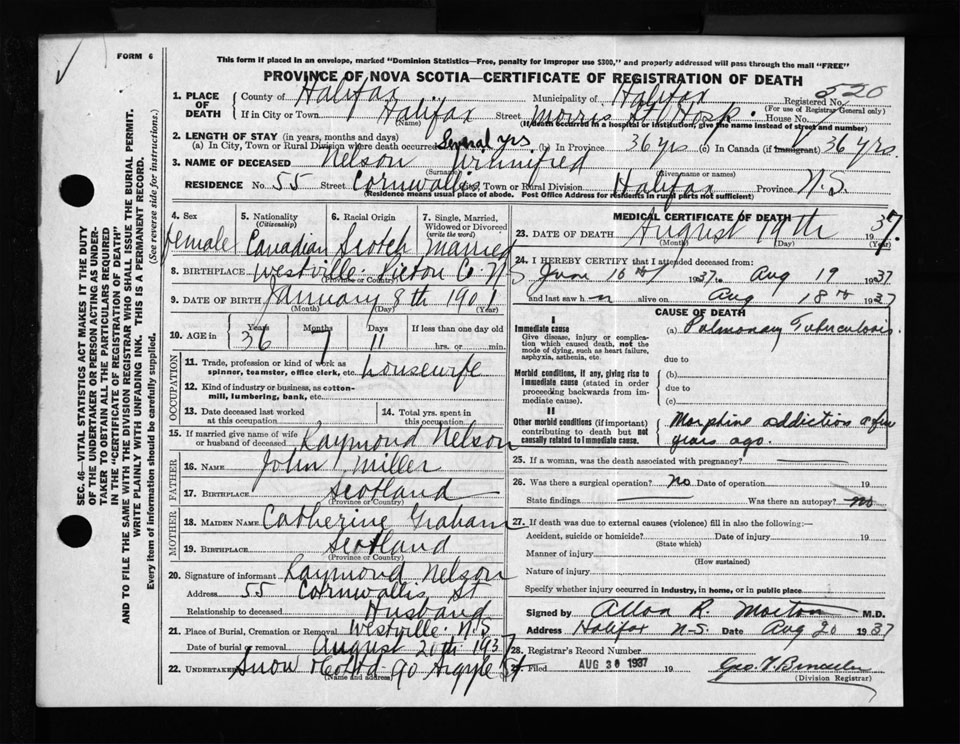 FORM 6
This form if placed in an envelope, marked "Dominion Statistics—Free, penalty for improper use $300," and properly addressed will pass through the mail "FREE"
PROVINCE OF NOVA SCOTIA—CERTIFICATE OF REGISTRATION OF DEATH
520
1. PLACE OF DEATH { County of Halifax Municipality of Halifax Registered No.
(For use of Registrar General only)
If in City or Town Halifax Street Morris St Hosp. House No.
(Name) (If death occurred in a hospital or institution, give the name instead of street and number)
2. LENGTH OF STAY (in years, months and days)
(a) In City, Town or Rural Division where death occurred Several yrs. (b) In Province 36 yrs (c) In Canada (if immigrant) 36 yrs.
3. NAME OF DECEASED Nelson Winnifred
(Surname) (Given name or names)
RESIDENCE No. 55 Street Cornwallis City, Town or Rural Division Halifax Province N.S.
(Residence means usual place of abode. Post Office Address for Residents in rural parts not sufficient)
4. Sex
female
5. Nationality
(Citizenship)
Canadian
6. Racial Origin
Scotch
7. Single, Married, Widowed or Divorced
(write the word)
Married
8. BIRTHPLACE Westville Pictou Co. N.S
9. DATE OF BIRTH January 8th 1901
(Month) (Day) (Year)
10. AGE in Years Months Days If less than one day old
36 7 11 hrs. or min.
OCCUPATION
11. Trade, profession or kind of work as
spinner, teamster, office clerk, etc. housewife
12. Kind of industry or business, as cotton-
mill, lumbering, bank, etc.
13. Date deceased last worked
at this occupation
14. Total yrs. spent in
this occupation
15. If married give name of wife
or husband of deceased Raymond Nelson
FATHER
16. NAME John Miller
17. BIRTHPLACE Scotland
(Province or Country)
MOTHER
18. MAIDEN NAME Catherine Graham
19. BIRTHPLACE Scotland
(Province or Country)
20. Signature of informant Raymond Nelson
Address 55 Cornwallis St
Relationship to deceased Husband
21. Place of Burial, Cremation or Removal Westville N.S
Date of burial or removal August 21th 1937
22. Undertaker Snow & Co Ltd 90 Argyle St
(Name and address)
MEDICAL CERTIFICATE OF DEATH
23. DATE OF DEATH August 19th 1937.
(Month) (Day) (Year)
24. I HEREBY CERTIFY that I attended deceased from:
June 16th 1937 to Aug 19 1937
and last saw h alive on Aug 18th 1937
CAUSE OF DEATH
I
Immediate cause (a) Pulmonary Tuberculosis.
Give disease, injury or complica-
tion which caused death, not the
mode of dying, such as heart failure,
asphyxia, asthenia, etc.
due to
Morbid conditions, if any, giving rise to
immediate cause (stated in order
proceeding backwards from im-
mediate cause).
(b)
due to
(c)
II
Other morbid conditions (if important)
contributing to death but not
causally related to immediate cause.
Morphine addiction a few
years ago.
25. If a woman, was the death associated with pregnancy?
26. Was there a surgical operation? No Date of operation 19
State findings Was there an autopsy? no
27. If death was due to external causes (violence) fill in also the following:—
Accident, suicide or homicide? Date of injury 19
(State which)
Manner of injury
(How sustained)
Nature of injury
Specify whether injury occurred in industry, in home, or in public place
Signed by Allan R. Morton M.D.
Address Halifax N.S. Date Aug 20 1937
28. Registrar's Record Number
Filed AUG 30 1937 19
(Division Registrar)
SEC. 46—VITAL STATISTICS ACT MAKES IT THE DUTY
OF THE UNDERTAKER OR PERSON ACTING AS UNDER-
TAKER TO OBTAIN ALL THE PARTICULARS REQUIRED
IN THE "CERTIFICATE OF REGISTRATION OF DEATH"
AND TO FILE THE SAME WITH THE DIVISION REGISTRAR WHO SHALL ISSUE THE BURIAL PERMIT.
WRITE PLAINLY WITH UNFADING INK. THIS IS A PERMANENT RECORD.
Every item of information should be carefully supplied. (See reverse side for instructions.)